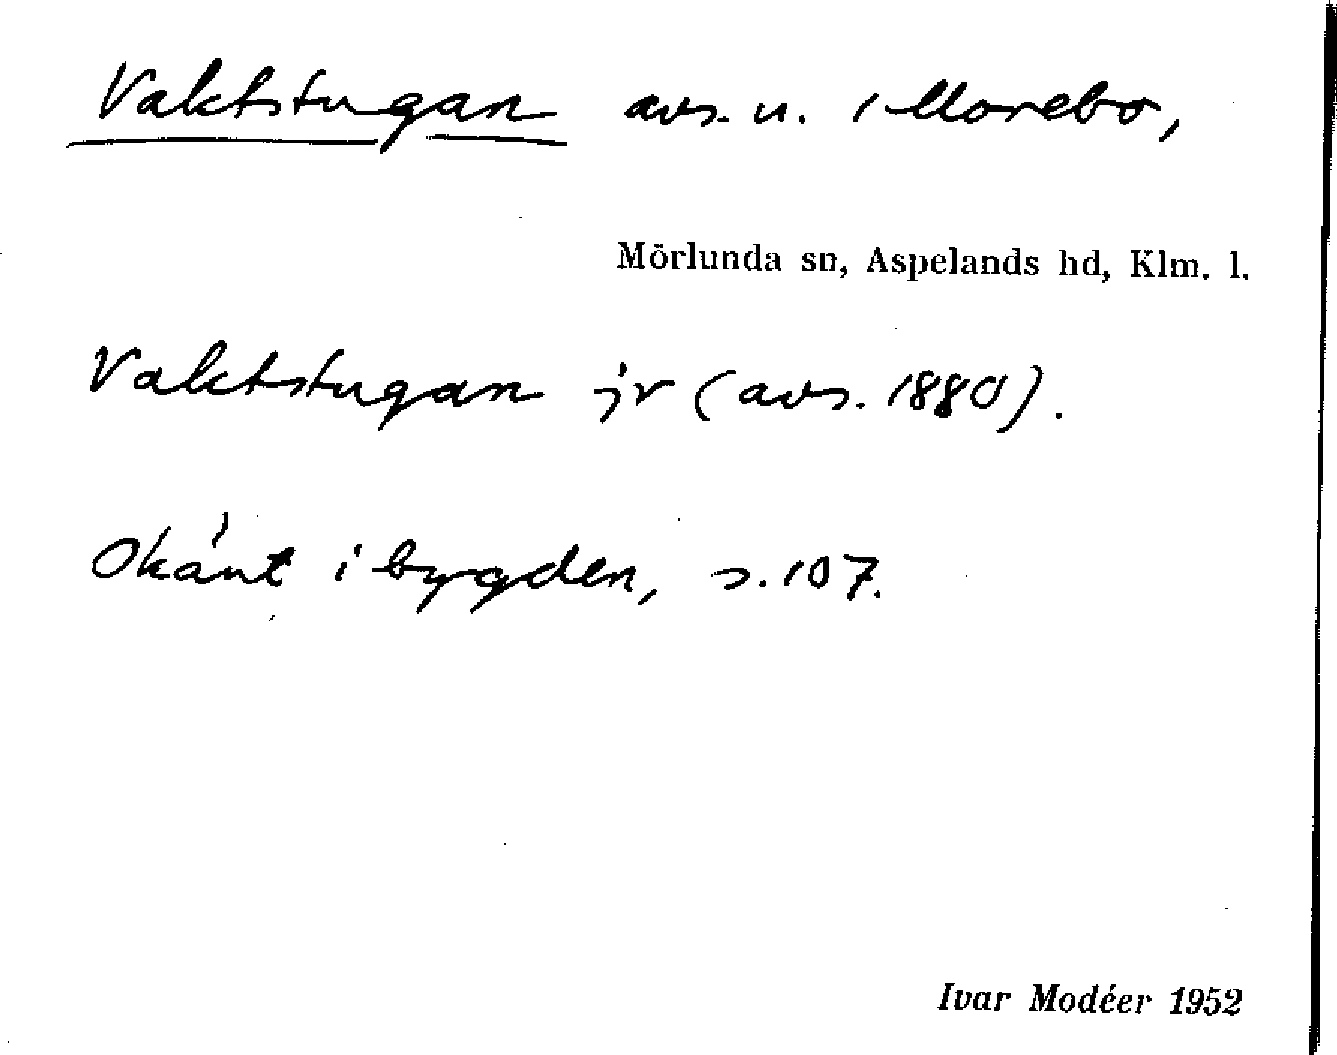 Vaktstugan avs. u. Morebo,
Mörlunda sn, Aspelands hd, Klm. l.
Vaktstugan jr (avs. 1880).
Okänt i bygden, s. 107.
Ivar Modéer 1952